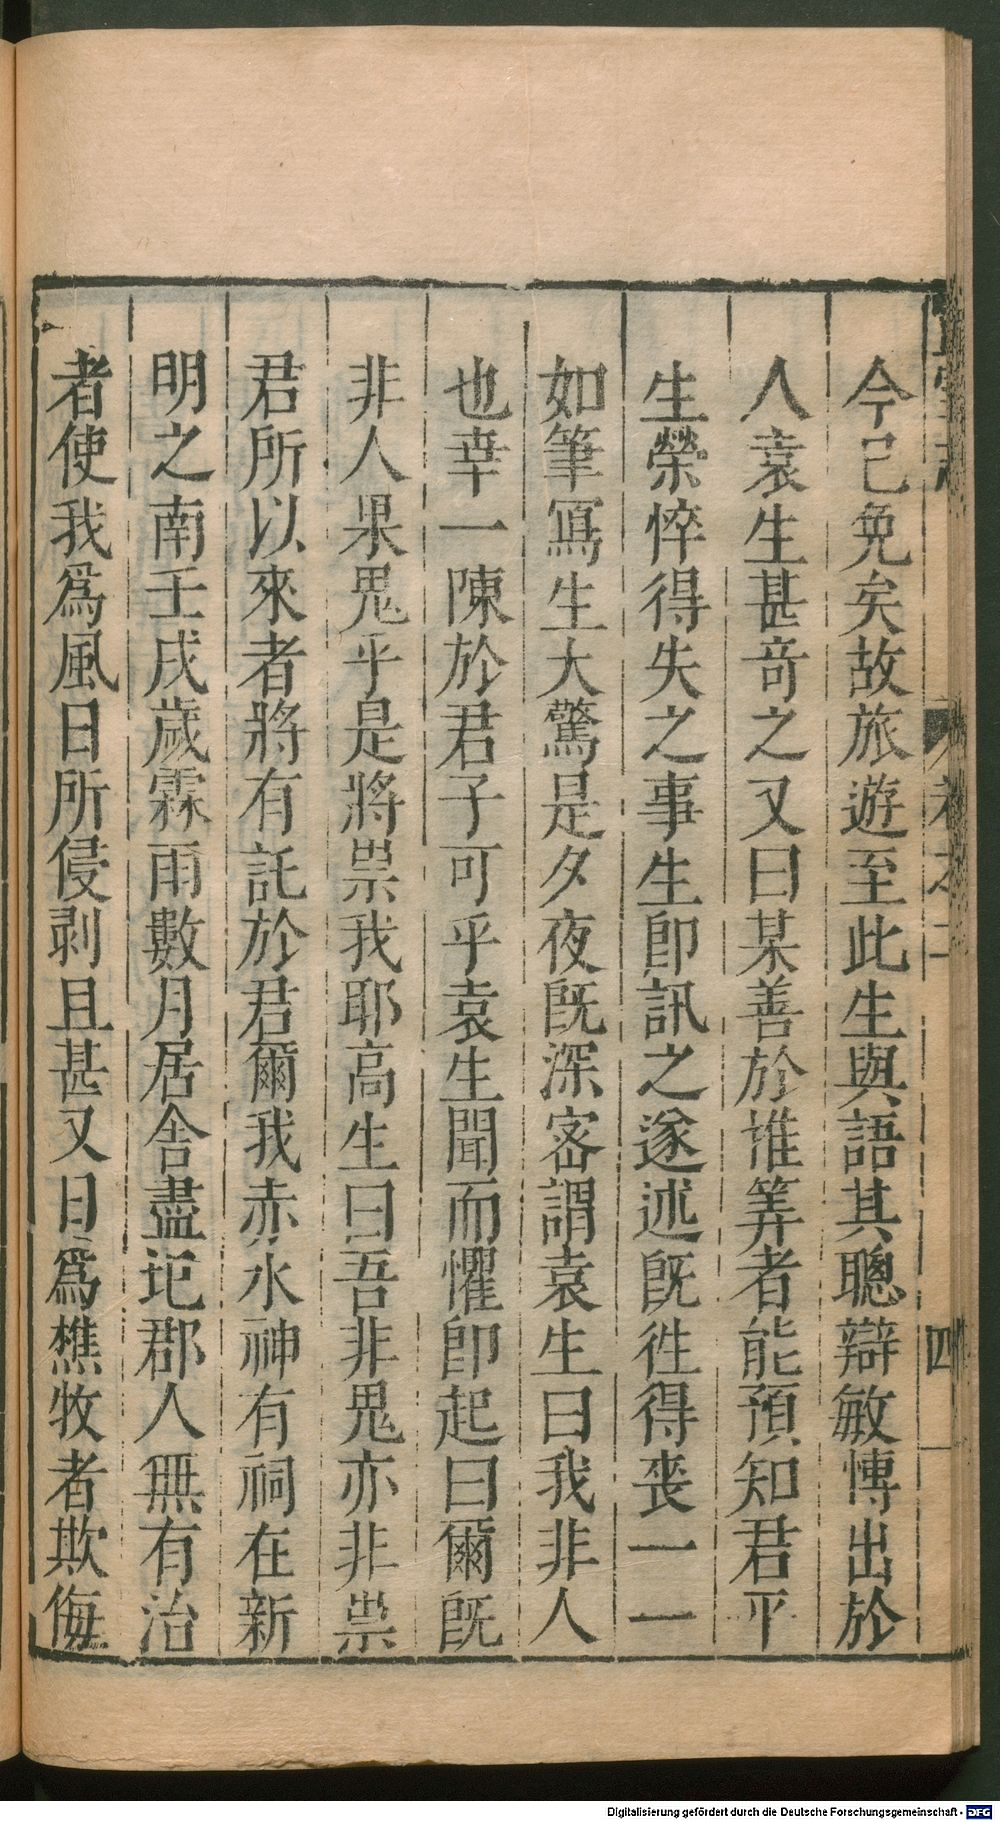 今已免矣故旅遊至此生與語其聰辯敏愽出於
人袁生甚竒之又曰某善於惟筭者能預知君平
生榮悴得失之事生即訊之遂述既徃得丧一一
如筆冩生大驚是夕夜既深宻謂袁生曰我非人
也幸一陳於君子可乎袁生聞而懼即起曰爾既
非人果鬼乎是將祟我耶高生曰吾非鬼亦非祟
君所以來者將有託於君爾我赤水神有祠在新
明之南壬戌歲霖雨數月居舎盡圮郡人無有治
者使我爲風日所侵剥且甚又日爲樵牧者欺侮
卷之二
四
Digitalisierung gefördert durch die Deutsche Forschungsgemeinschaft - DFG